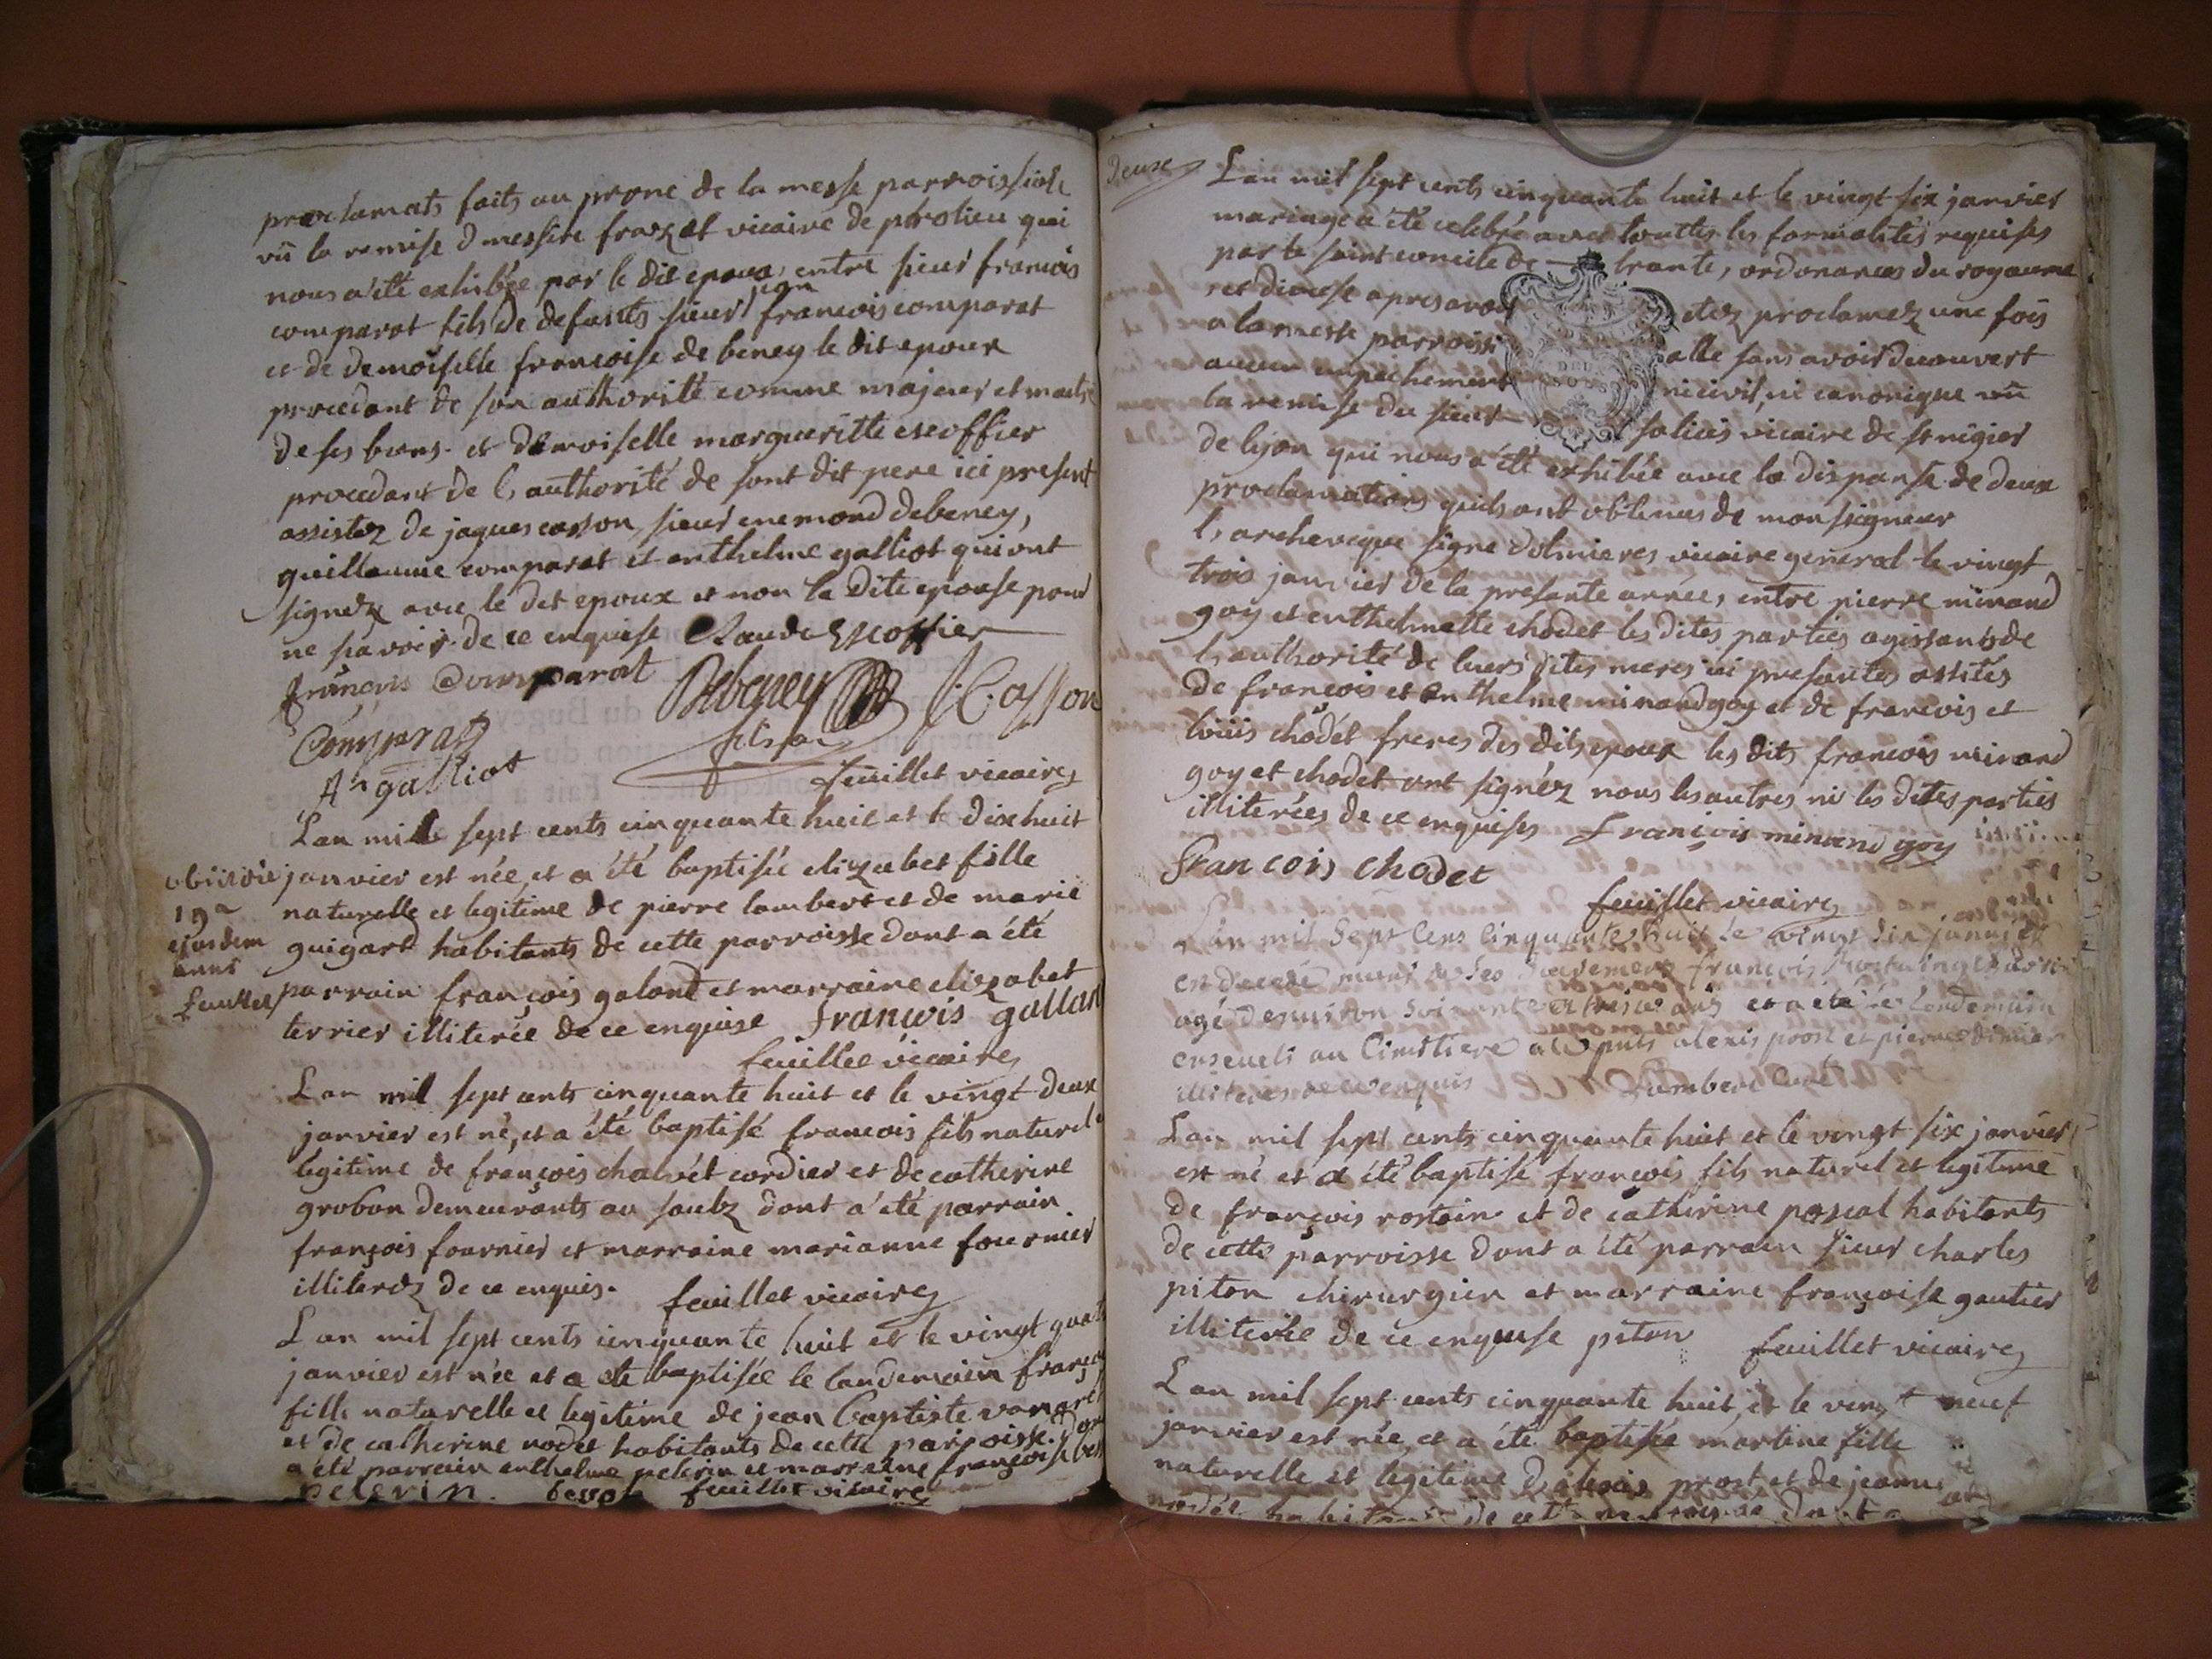 proclamats faits au prone de la messe parroissiale
vû la remise d messire frarz et vicaire de ptrolieu qui
nous a été exhibée par le dit epoux, entre sieur francois
comparat fils de defunts sieur jean francois comparat
et de demoiselle francoise de beney le dit epoux
procedant de son authorité comme majeur et maitre
de ses biens. et demoiselle margueritte escoffier
procedant de l,authorité de sont dit pere ici present
assistez de jaques casson, sieur enemond debeney,
guillaume comparat et anthelme galliot qui ont
signez avec le dit epoux et non la dite epouse pour
ne savoir de ce enquise Claude Escoffier
françois Comparat Debeney J. Casson
Comparat fils
An galliot feuillet vicaire
L'an mille sept cents cinquante huit et le dixhuit
obiit die janvier est née, et a été baptisée elizabet fille
19a naturelle et legitime de pierre lambert et de marie
ejusdem guigard habitants de cette parroisse dont a été
anni
feuillet parrain françois galand et marraine elizabet
terrier illiterée de ce enquise francois gallan
feuillet vicaire
L'an mil sept cents cinquante huit et le vingt deux
janvier est né, et a été baptisé francois fils naturel
legitime de françois chalvét cordier et de catherine
grobon demeurants au saulz dont a été parrain
françois fournier et marraine marianne fournier
illiterez de ce enquis. feuillet vicaire
L'an mil sept cents cinquante huit et le vingt quat
janvier est née et a été baptisée le landemain franç
fille naturelle et legitime de jean baptiste
et de catherine nodet habitants de cette parroisse. dont
a été parrain anthelme pelerin et marraine françoise
pelerin. feuillet vicaire
Deuse
L'an mil sept cents cinquante huit et le vingt six janvier
mariage a été celebré avec touttes les formalités requises
par le saint concile de trante, ordonances du royaume
et diocese apres avoir etez proclamez une fois
a la messe parroissi alle sans avoir decouvert
aucun empechement ni civil, ni canonique vû
la remise du sieur salicis vicaire de st nigier
de lyon qui nous a été exhibée avec la dispanse de deux
proclamations quils ont obtenus de monseigneur
l,archeveque signé dolmieres vicaire general le vingt
trois janvier de la presante année, entre pierre minand
goy et enthelmette chodet les dites parties agissants de
l,authorité de luers dites meres ici presantes assités
de françois et enthelme minand goy et de francois et
louis chodet freres des dits epoux les dits francois minand
goy et chodet ont signéz nous les autres ni les dites parties
illiterées de ce enquises françois minand goy
François chodet
feuillet vicaire
L'an mil Sept Cens Cinquante huit le vingt six janvier
est decedé muni de ses Sacremens françois
agé denviron soixante et treize ans et a été le Lendemain
enseveli au Cimitiere alexis prost et pierre
illiterés de ce enquis Lambert Curé
L'an mil sept cents cinquante huit et le vingt six janvier
est né et a été baptisé françois fils naturel et legitime
de françois rostain et de catherine pascal habitants
de cette parroisse dont a été parrain sieur charles
piton chirurgien et marraine françoise gautier
illiterée de ce enquise piton feuillet vicaire
L'an mil sept cents cinquante huit, et le vingt neuf
janvier est née et a été baptisée martine fille
naturelle et legitime d'alexis prost et de jeanne
nodét habitants de cette parroisse dont a